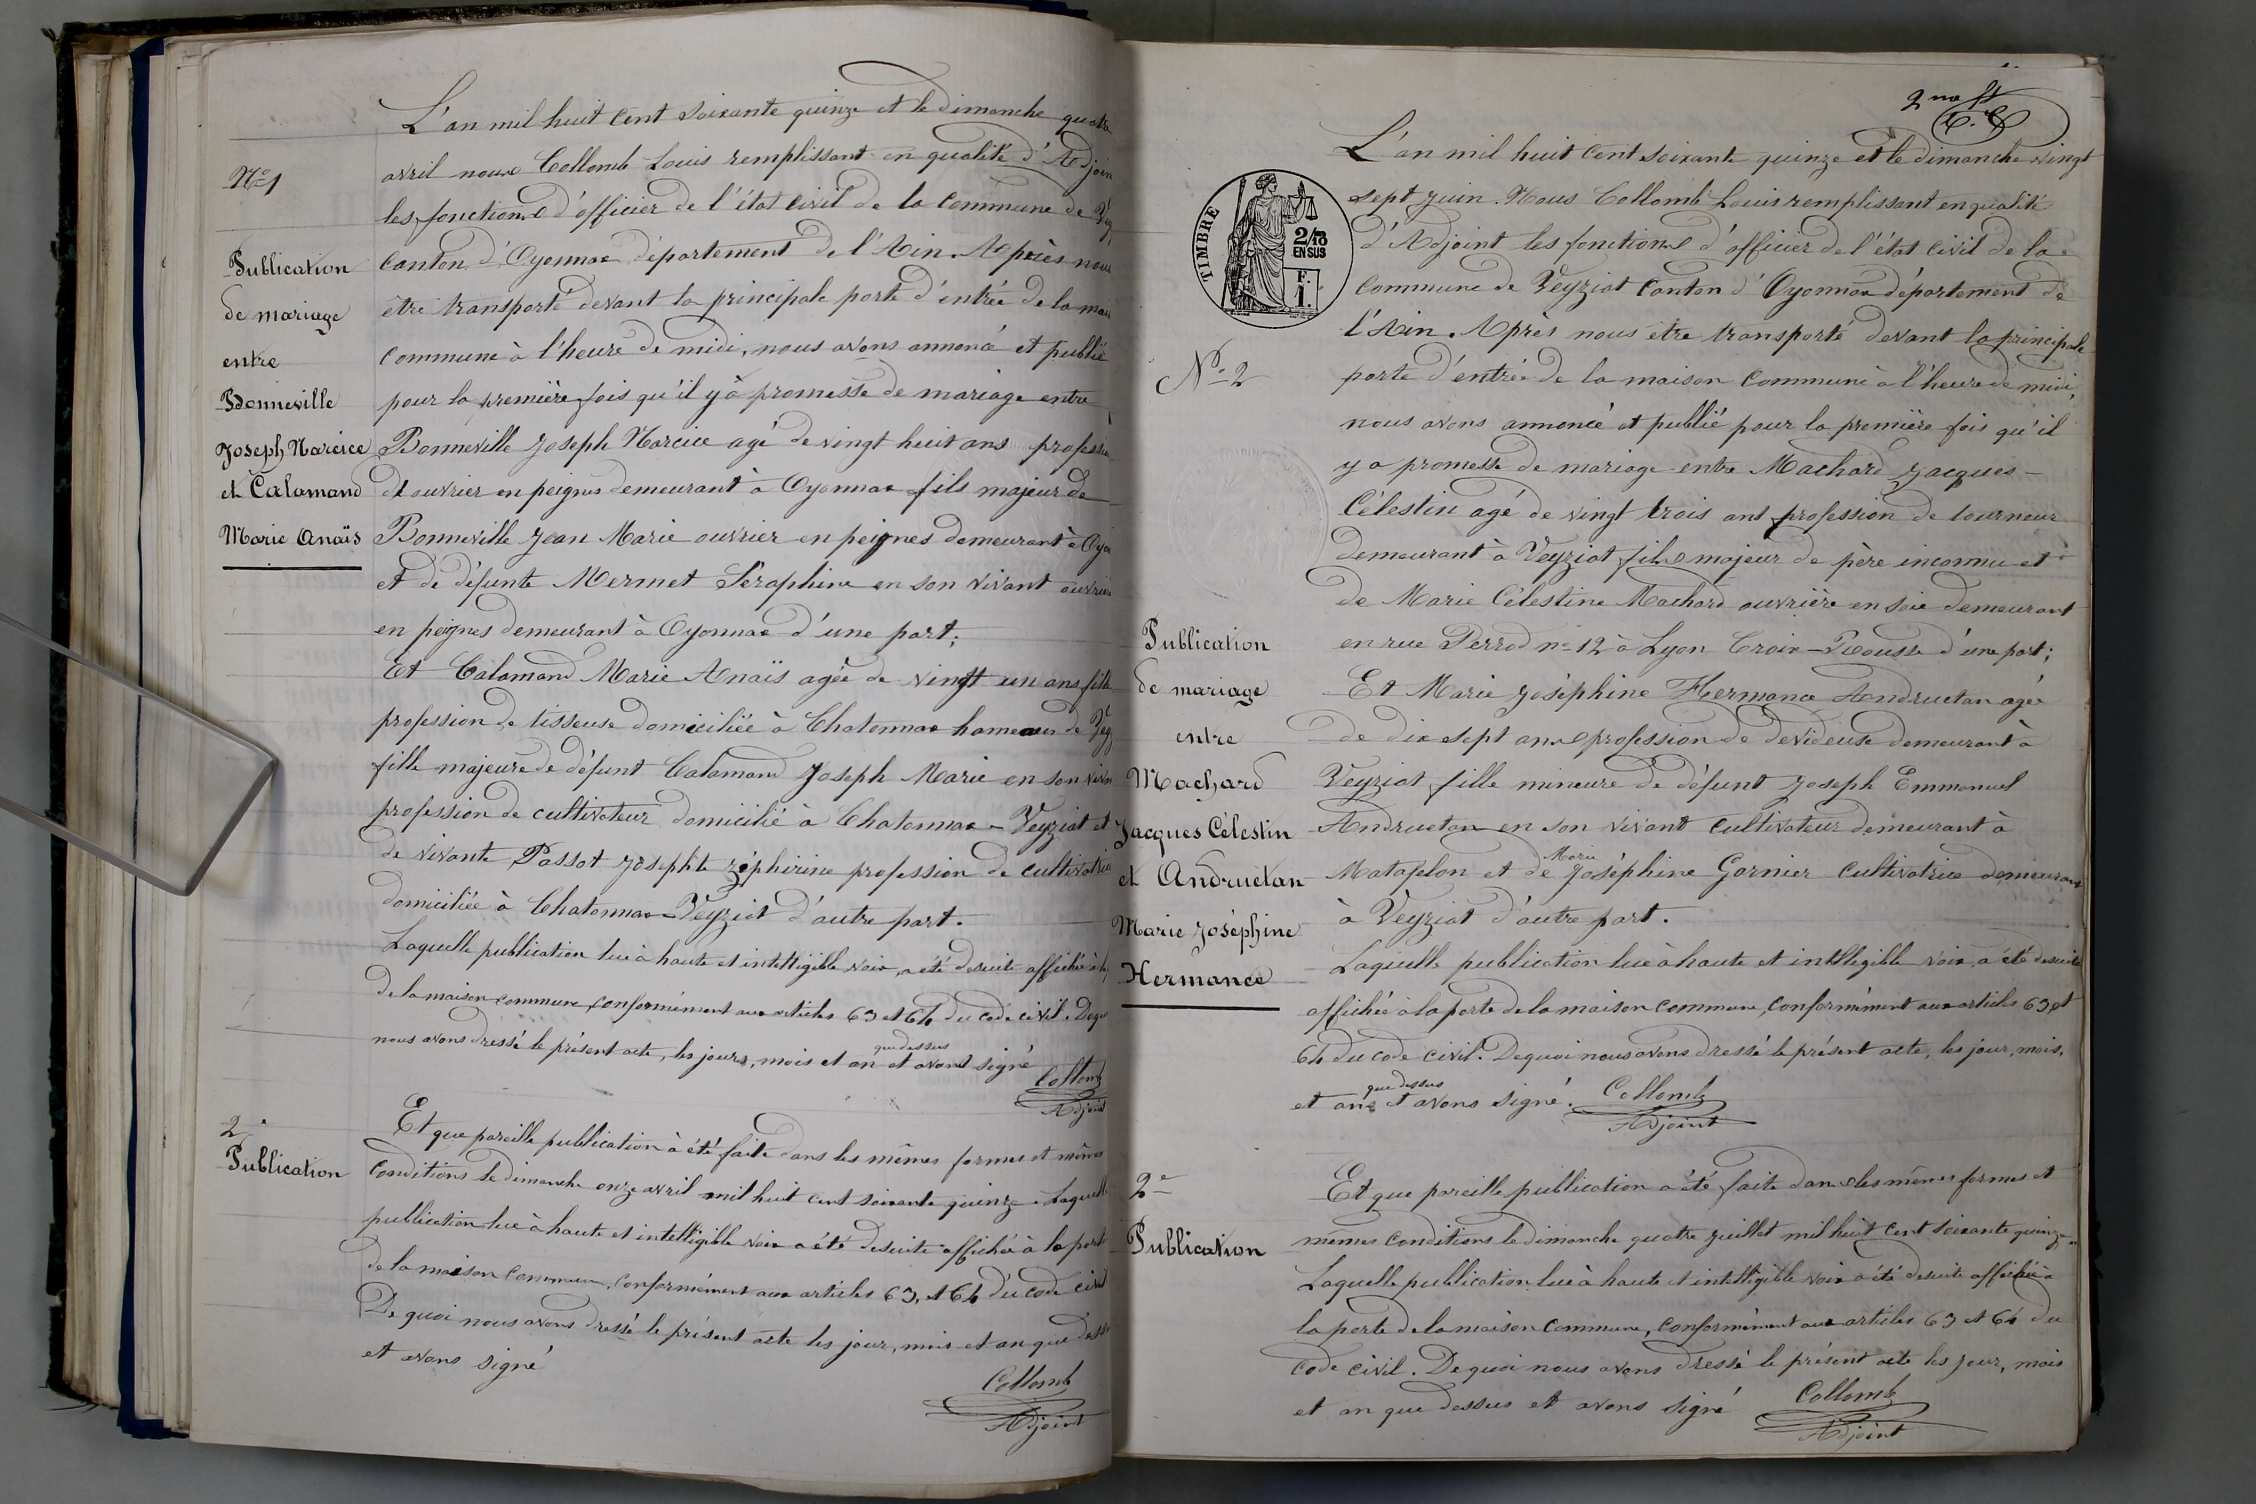 L'an mil huit cent soixante quinze et le dimanche quatre
avril nous Collomb Louis remplissant en qualité d'Adjoin
les fonctions d'officier de l'état civil de la commune de Vey
canton d'Oyonnax département de l'Ain. Après nous
être transporté devant la principale porte d'entrée de la mais
commune à l'heure de midi, nous avons annoncé et publié
pour la première fois qu'il y à promesse de mariage entre
Bonneville Joseph Narcice agé de vingt huit ans profession
d ouvrier en peignes demeurant à Oyonnax fils majeur de
Bonneville Jean Marie ouvrier en peignes demeurant à Oyo
et de défunte Mermet Séraphine en son vivant ouvrière
en peignes demeurant à Oyonnax d'une part;
Et Calamand Marie Anaïs agée de vingt un ans fille
profession de tisseuse domiciliée à Chatonnax hameau de Vey
fille majeure de défunt Calamand Joseph Marie en son viva
profession de cultivateur domicilié à Chatonnax-Veyziat et
de vivante Passot Josephte zéphirine profession de cultivatrice
domiciliée à Chatonnax-Veyziat d'autre part.
Laquelle publication lue à haute et intelligible voix, a été desuite affichée à la
de la maison commune, conformément aux articles 63 et 64 du code civil. De qu
que dessus
nous avons dressé le présent acte, les jours, mois et an et avons signé
Collomb
Adjoint
Et que pareille publication à été faite dans les mêmes formes et mêmes
conditions le dimanche onze avril mil huit cent soixante quinze. Laquelle
publication lue à haute et intelligible voix a été desuite affichée à la port
de la maison commune, conformément aux articles 63, et 64 du code civil
De quoi nous avons dressé le présent acte les jour, mois et an que dess
et avons signé
Collomb
Adjoint
No 1
Publication
de mariage
entre
Bonneville
Joseph Narcice
et Calamand
Marie Anaïs
2e
Publication
2me ft
L'an mil huit cent soixante quinze et le dimanche vingt
sept juin. Nous Collomb Louis remplissant en qualité
d'Adjoint les fonctions d'officier de l'état civil de la
commune de Veyziat canton d'Oyonnax département de
l'Ain. Après nous être transporté devant la principale
porte d'entrée de la maison commune à l'heure de midi,
nous avons annoncé et publié pour la première fois qu'il
y a promesse de mariage entre Machard Jacques-
Célestin agé de vingt trois ans profession de tourneur
demeurant à Veyziat fils majeur de père inconnu et
de Marie Célestine Machard ouvrière en soie demeurant
en rue Perrod no 12 à Lyon Croix-Rousse d'une part;
Et Marie Joséphine Hermance Andruetan agée
de dix sept ans profession de dévideuse demeurant à
Veyziat fille mineure de défunt Joseph Emmanuel
Andruetan en son vivant cultivateur demeurant à
Marie
Matafelon et de Joséphine Garnier cultivatrice demeurant
à Veyziat d'autre part.
Laquelle publication lue à haute et intelligible voix, a été desuite
affichée à la porte de la maison commune, conformément aux articles 63 et
64 du code civil. De quoi nous avons dressé le présent acte, les jour, mois,
que dessus
et ans et avons signé. Collomb
Adjoint
Et que pareille publication a été faite dans les mêmes formes et
mêmes conditions le dimanche quatre juillet mil huit cent soixante quinze.
Laquelle publication lue à haute et intelligible voix a été desuite affichée à
la porte de la maison commune, conformément aux articles 63 et 64 du
code civil. De quoi nous avons dressé le présent acte les jour, mois
et an que dessus et avons signé Collomb
Adjoint
TIMBRE
2/10
EN SUS
F.
1.
No 2
Publication
de mariage
entre
Machard
Jacques Célestin
et Andruetan
Marie Joséphine
Hermance
2e
Publication